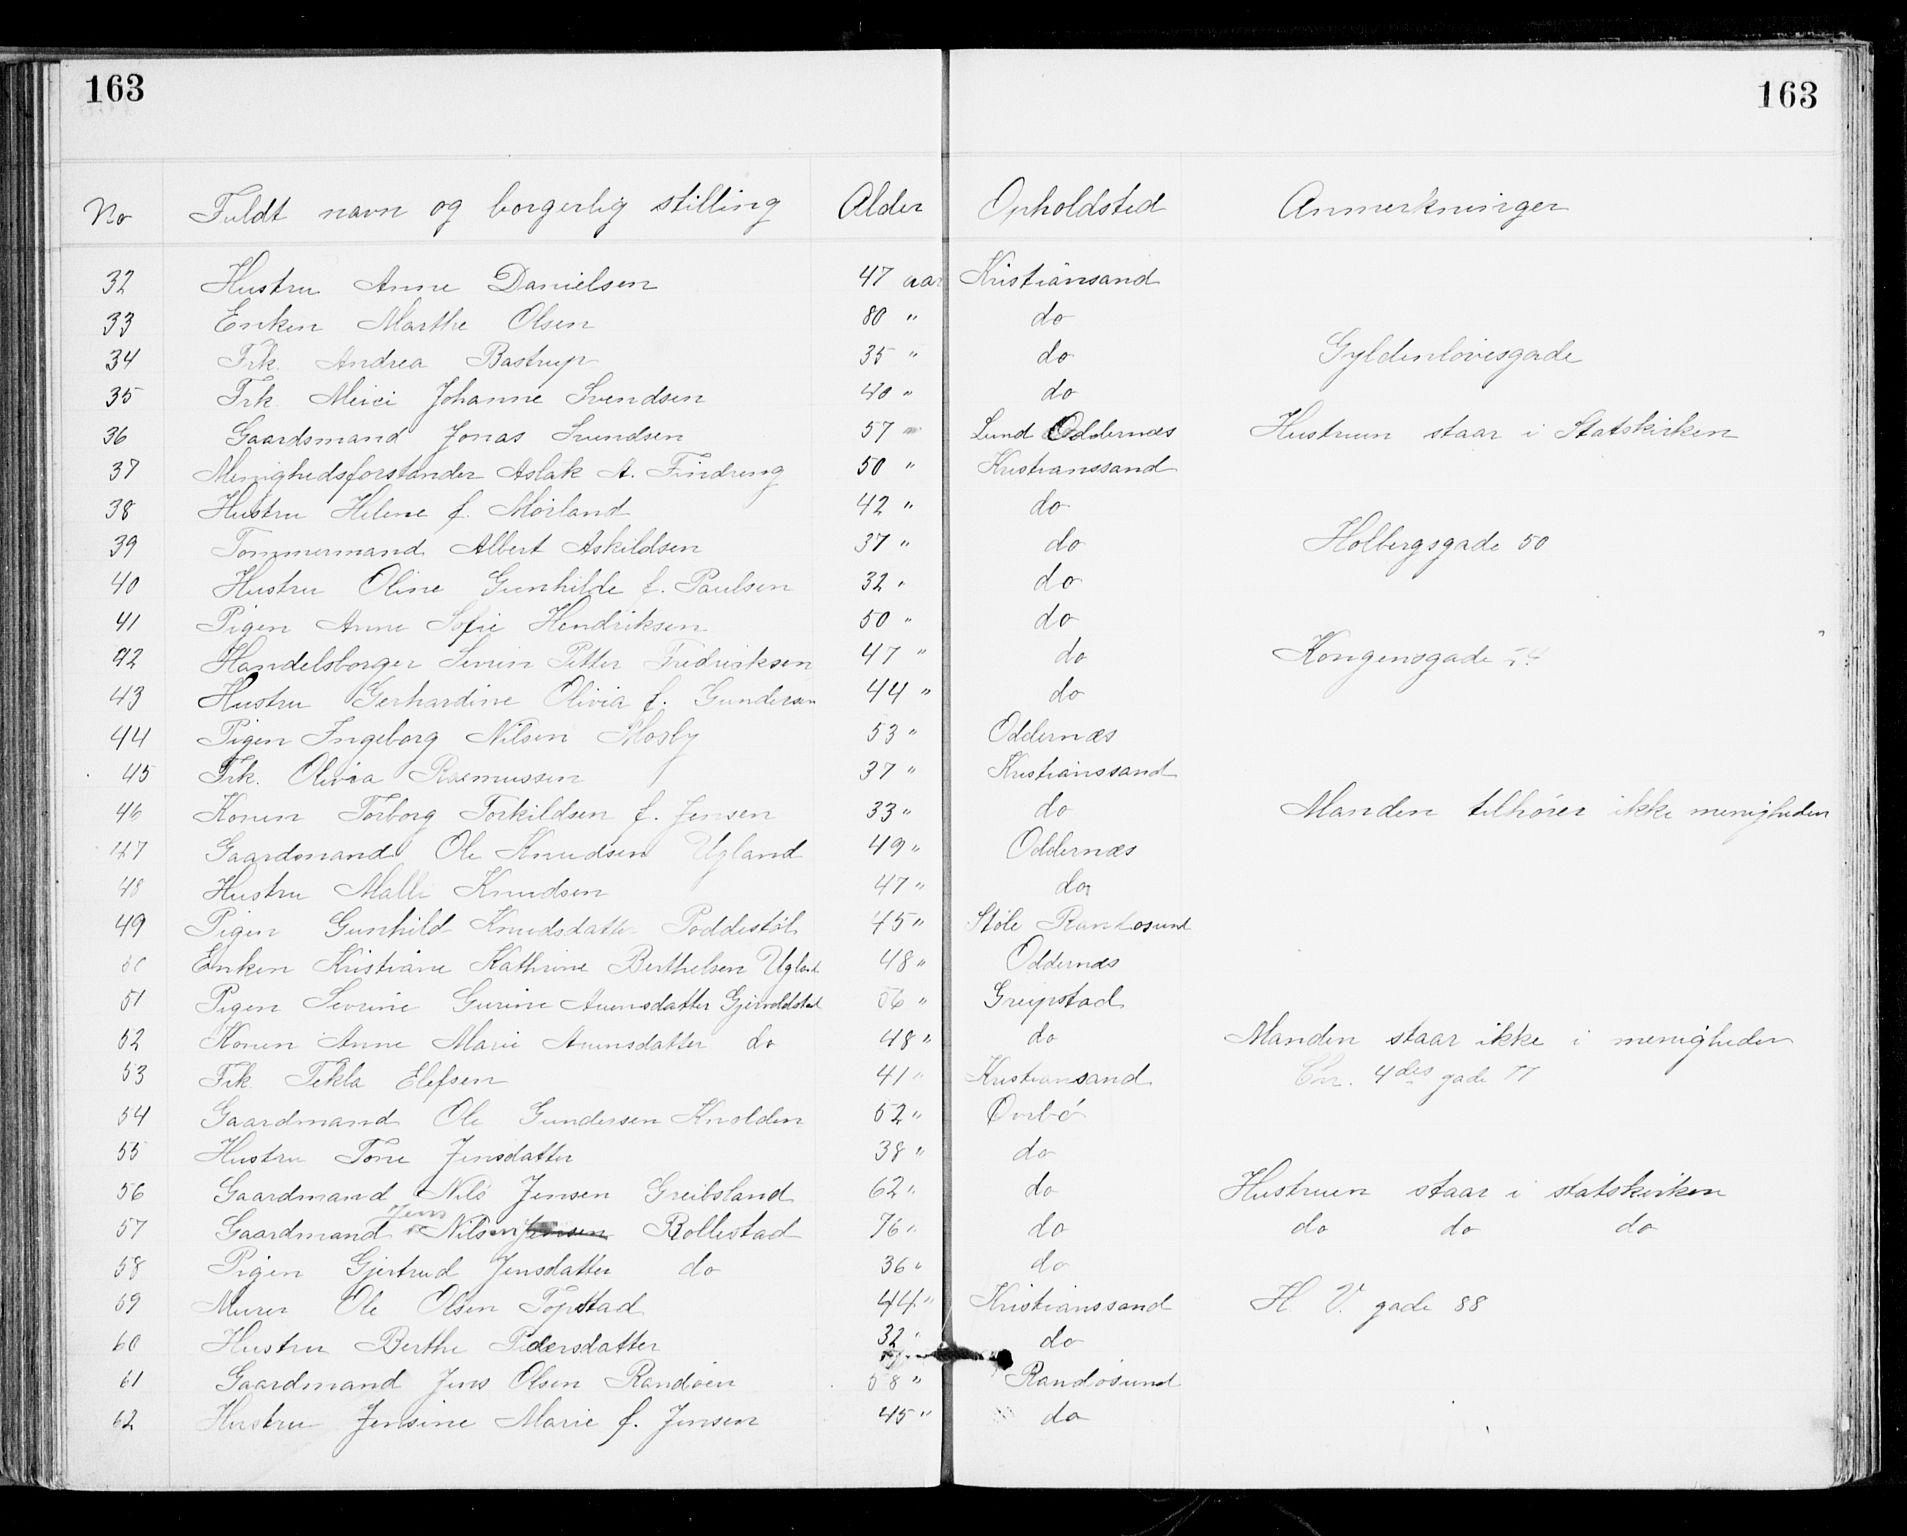 163 163
No Fuldt navn og borgerlig stilling Alder Opholdsted Anmerkninger
32 Hustru Anne Danielsen 47 aar Kristiansand
33 Enken Marthe Olsen 80 " do
34 Frk. Andrea Bastrup 35 " do Gyldenløvesgade
35 Frk. Meier Johanne Svendsen 40 " do
36 Gaardsmand Jonas Svendsen 57 Lund Oddernæs Hustruen staar i Statskirken
37 Menighedsforstander Aslak A. Findreng 50 " Kristianssand
38 Hustru Helene f. Mørland 42 " do
39 Tømmermand Albert Askildsen 37 " do Holbergsgade 50
40 Hustru Oline Gunhilde f. Paulsen 32 " do
41 Pigen Anne Sofie Hendriksen 50 " do
42 Handelsborger Severin Petter Fredriksen 47 " do Kongensgade
43 Hustru Gerhardine Olivia f. Gundersen 44 " do
44 Pigen Ingeborg Nilsen Mosby 53 " Oddernæs
45 Frk. Olivia Rasmussen 37 " Kristianssand
46 Konen Torborg Torkildsen f. Jensen 33 " do Manden tilhører ikke menigheden
47 Gaardmand Ole Knudsen Ugland 49 " Oddernæs
48 Hustru Malli Knudsen 47 " do
49 Pigen Gunhild Knudsdatter Poddestøl 45 " Støle Randøsund
50 Enken Kristiane Kathrine Berthelsen Ugland 48 " Oddernæs
51 Pigen Sevrine Gurine Aurensdatter Gjervoldstad 56 " Greipstad
52 Konen Anne Marie Aurensdatter do 48 " do Manden staar ikke i menigheden
53 Frk. Tekla Elefsen 41 " Kristiansand Chr. 4des gade 77
54 Gaardmand Ole Gundersen Knolden 52 " Øvrebø
55 Hustru Tone Jensdatter 38 " do
56 Gaardmand Nils Jensen Greibsland 62 " do Hustruen staar i statskirken
57 Gaardmand Jens Nilsen Jensen Rollestad 76 " do do do do
58 Pigen Gjertrud Jensdatter do 36 " do
59 Murer Ole Olsen Topstad 44 " Kristianssand H. V. gade 88
60 Hustru Berthe Pedersdatter 32 " do
61 Gaardmand Jens Olsen Randøen 58 " Randøsund
62 Hustru Jensine Marie f. Jensen 45 " do